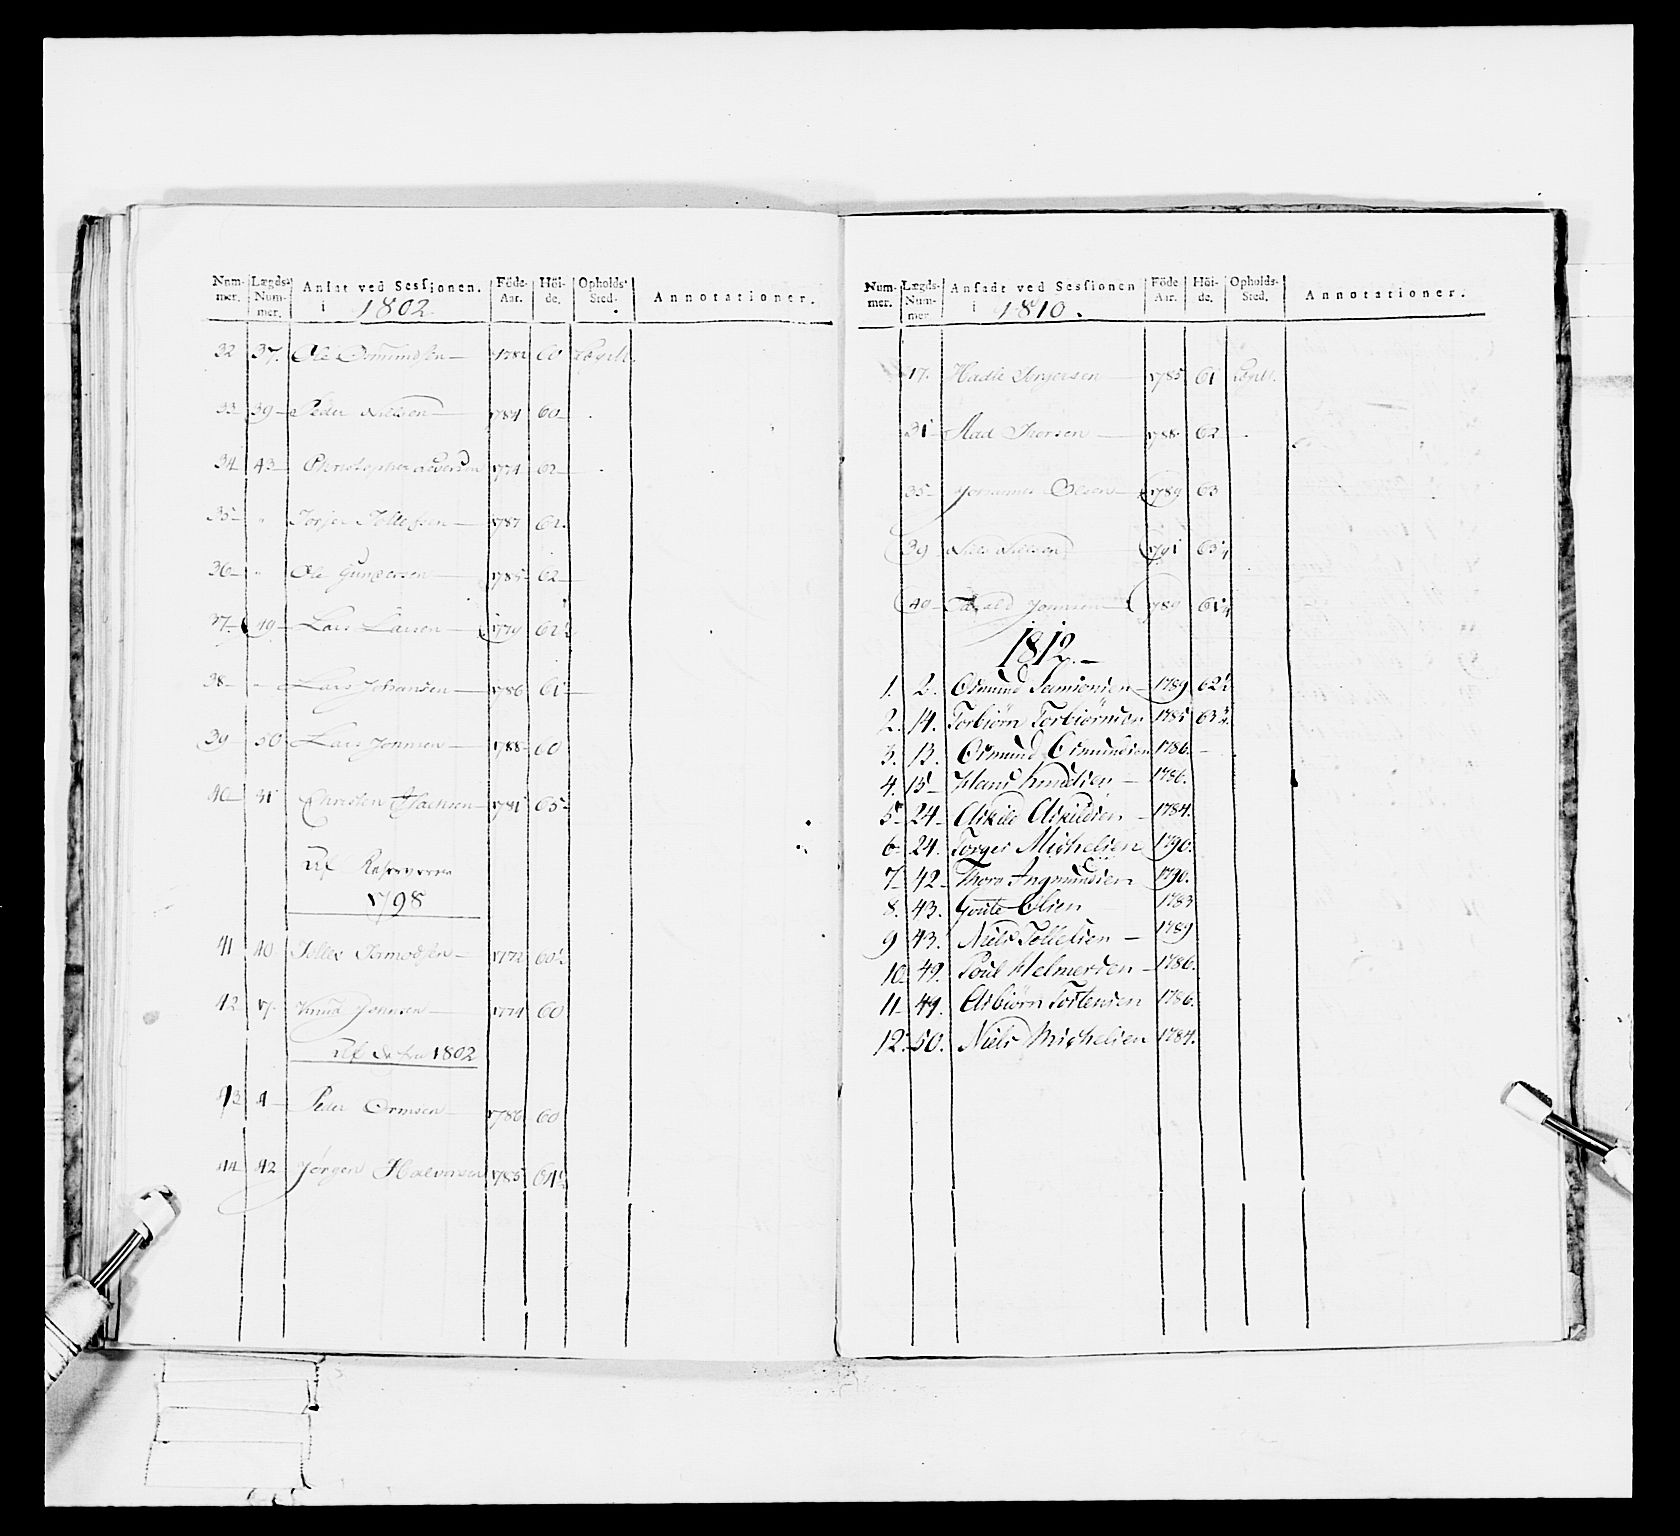 Num- mer. Lægds- Num- mer. Ansat ved Sessionen. i 1802. Föde- Aar. Höi- de. Opholds- Sted. Annotationer.
32 37. Ole Osmundsen 1782 60 Lægdt.
33 39 Peder Nielsen 1784 60
34 43 Christopher 1774 62
35 " Torjer Tollefsen 1787 62
36 " Ole Gundersen 1785 62
37 49 Lars Larsen 1779 62½
38 " Lars Johansen 1786 61
39 50 Lars Jonnsen 1788 60
40 31 Christen Isachsen 1781 65
Af Reserverne
1798
41 40 Tollev Tormodsen 1772 60½
42 17. Knud Johnsen 1774 60
Af 1802
43 4 Peder Ormsen 1786 60
44 42 Jørgen Halvorsen 1785 64½
Num- mer. Lægds- Num- mer. Ansadt ved Sessionen i 1810. Föde Aar. Höi- de. Opholds- Sted. Annotationer.
17. Hadle Torgersen 1785 61 Lægdt.
31 Aad Iversen 1788 62
35 Johannes Olsen 1789 63
39 Niels Nielsen 1791 63¼
40 Jonnsen 1789 61¼
1812.
1. 2. Osmund Samionsen 1789 62½
2. 14. Torbiørn Torbiørnsen 1785 63½
3. 13. Osmund Osmundsen 1786.
4. 15 Hans Knudsen 1786.
5 24 Askild Askildsen 1784.
6 24. Torger Michelsen 1790.
7 42 Thore Angmundsen 1790.
8. 43. Goute Olsen 1783
9 43. Niels Tollefsen 1789
10. 49. Poul Helmersen 1786.
11 49. Asbiørn Tostensen 1786.
12. 50. Niels Michelsen 1784.